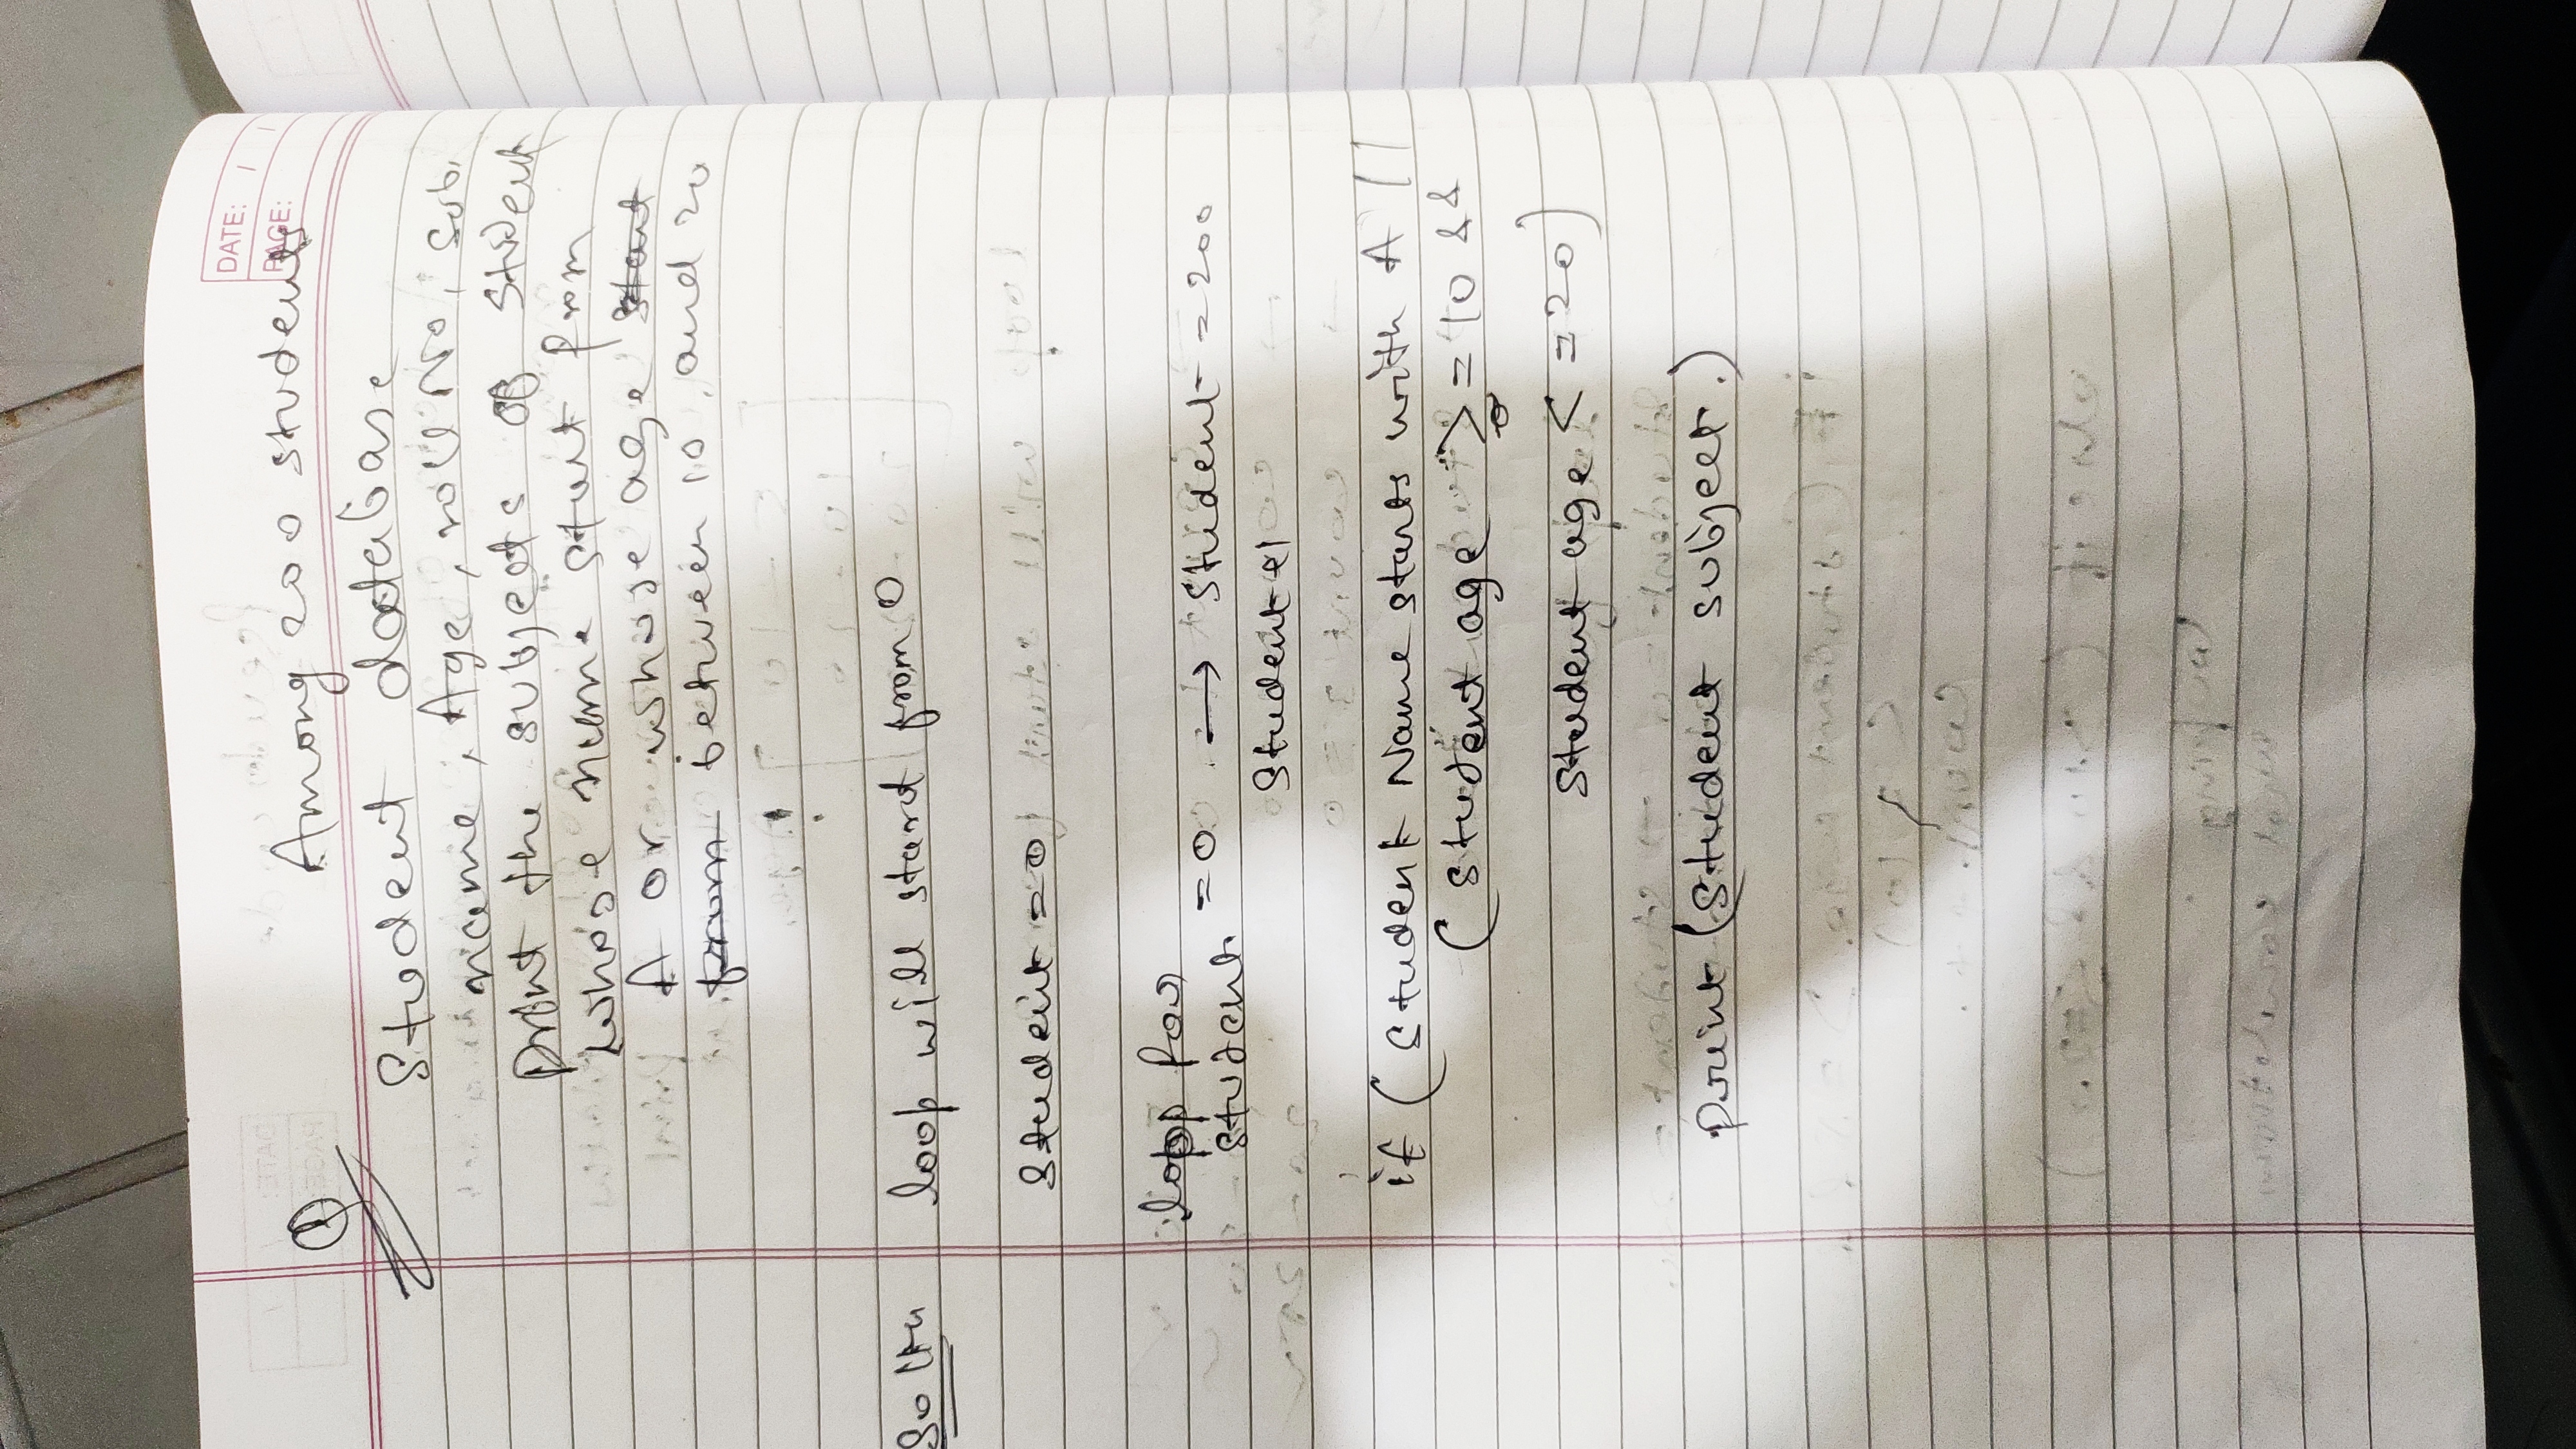 DATE: / /
PAGE:
Q
Among 200 students
Student database
name, Age, roll No, sub.
print the subjects of student
whose name start from
A or whose age start
from between 10 and 20
Soltn loop will start from 0
Student = 0
loop for
student = 0 → Student = 200
Student +1
if ( Student Name starts with A ||
( Student age >= 10 &&
Student age <= 20)
print (Student subject.)